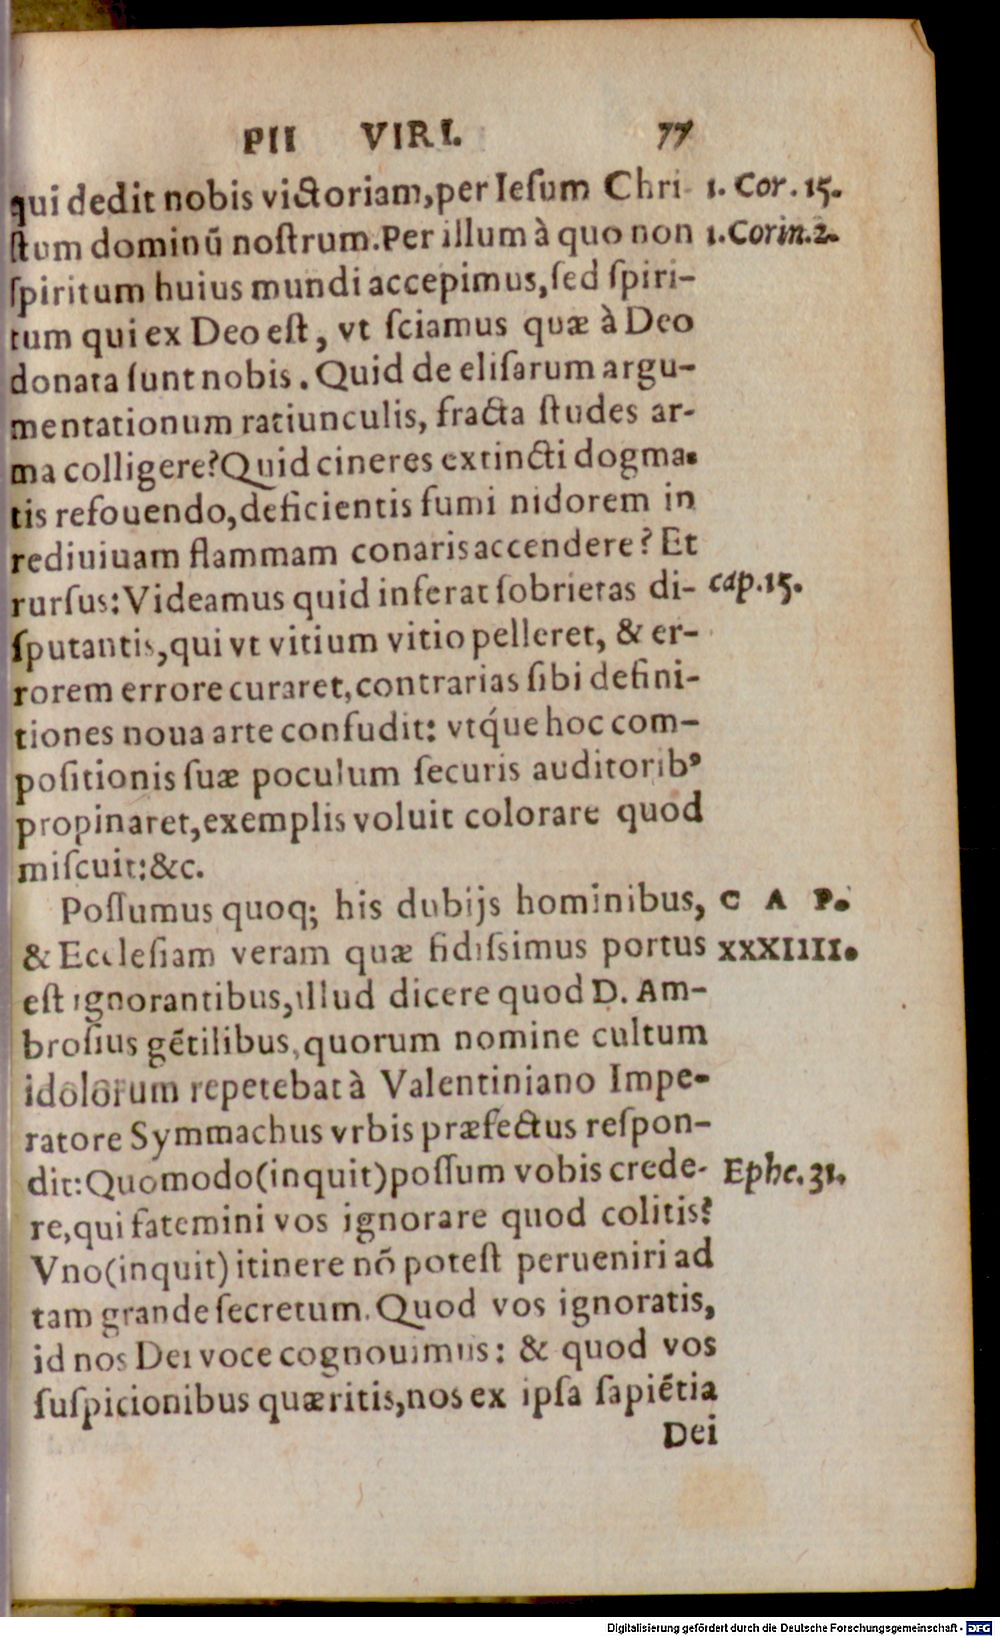 PII VIRI. 77
qui dedit nobis victoriam,per Iesum Chri- 1. Cor. 15.
ſtum dominū noſtrum.Per illum à quo non 1.Corin.2.
ſpiritum huius mundi accepimus,ſed ſpiri-
tum qui ex Deo eſt, vt ſciamus quæ à Deo
donata ſunt nobis. Quid de eliſarum argu-
mentationum ratiunculis, fracta ſtudes ar-
ma colligere?Quid cineres extincti dogma-
tis refouendo,deficientis fumi nidorem in
rediuiuam flammam conaris accendere? Et
rurſus:Videamus quid inferat ſobrietas di- cap.15.
ſputantis,qui vt vitium vitio pelleret, & er-
rorem errore curaret,contrarias ſibi defini-
tiones noua arte confudit: vtq́ue hoc com-
poſitionis ſuæ poculum ſecuris auditoribꝰ
propinaret,exemplis voluit colorare quod
miſcuit:&c.
Poſſumus quoq; his dubijs hominibus, C A P.
& Eccleſiam veram quæ fidiſsimus portus XXXIIII.
eſt ignorantibus,illud dicere quod D. Am-
broſius gētilibus,quorum nomine cultum
idolorum repetebat à Valentiniano Impe-
ratore Symmachus vrbis præfectus reſpon-
dit:Quomodo(inquit)poſſum vobis crede- Ephe.31.
re,qui fatemini vos ignorare quod colitis?
Vno(inquit) itinere nō poteſt perueniri ad
tam grande ſecretum. Quod vos ignoratis,
id nos Dei voce cognouimus: & quod vos
ſuſpicionibus quæritis,nos ex ipſa ſapiētia
Dei
Digitalisierung gefördert durch die Deutsche Forschungsgemeinschaft - DFG